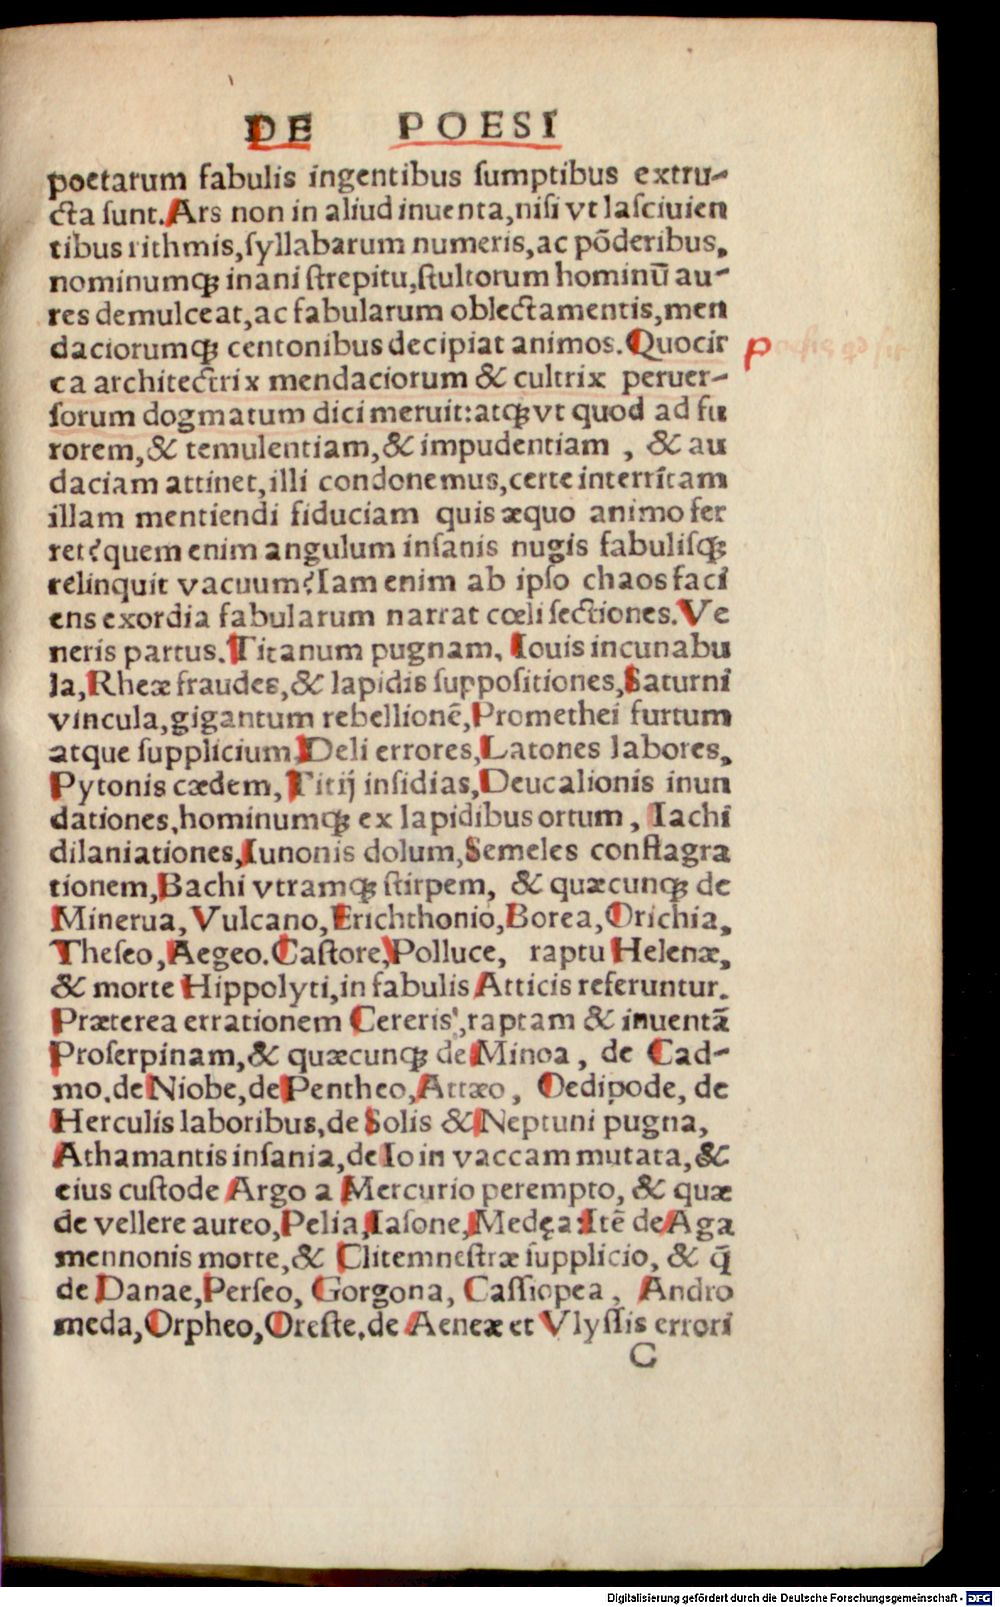 DE POESI
poetarum fabulis ingentibus ſumptibus extru-
cta ſunt. Ars non in aliud inuenta, niſi vt laſciuien
tibus rithmis, ſyllabarum numeris, ac põderibus,
nominumqȝ inani ſtrepitu, ſtultorum hominũ au-
res demulceat, ac fabularum oblectamentis, men
daciorumqȝ centonibus decipiat animos. Quocir
ca architectrix mendaciorum & cultrix peruer-
ſorum dogmatum dici meruit: atqȝ vt quod ad fu
rorem, & temulentiam, & impudentiam , & au
daciam attinet, illi condonemus, certe interritam
illam mentiendi fiduciam quis æquo animo fer
ret? quem enim angulum inſanis nugis fabuliſqȝ
relinquit vacuum? Iam enim ab ipſo chaos faci
ens exordia fabularum narrat cœli ſectiones. Ve
neris partus. Titanum pugnam, Iouis incunabu
la, Rheæ fraudes, & lapidis ſuppoſitiones, Saturni
vincula, gigantum rebellionẽ, Promethei furtum
atque ſupplicium, Deli errores, Latones labores,
Pytonis cædem, Titij inſidias, Deucalionis inun
dationes, hominumqȝ ex lapidibus ortum , Iachi
dilaniationes, Iunonis dolum, Semeles conflagra
tionem, Bachi vtramqȝ ſtirpem, & quæcunqȝ de
Minerua, Vulcano, Erichthonio, Borea, Orichia,
Theſeo, Aegeo. Caſtore, Polluce, raptu Helenæ,
& morte Hippolyti, in fabulis Atticis referuntur.
Præterea errationem Cereris, raptam & inuentã
Proſerpinam, & quæcunqȝ de Minoa, de Cad-
mo, de Niobe, de Pentheo, Attæo, Oedipode, de
Herculis laboribus, de Solis & Neptuni pugna,
Athamantis inſania, de Io in vaccam mutata, &
eius cuſtode Argo a Mercurio perempto, & quæ
de vellere aureo, Pelia, Iaſone, Medęa: Itẽ de Aga
mennonis morte, & Clitemneſtræ ſupplicio, & q̃
de Danae, Perſeo, Gorgona, Caſſiopea , Andro
meda, Orpheo, Oreſte, de Aeneæ et Vlyſſis errori
G
Digitalisierung gefördert durch die Deutsche Forschungsgemeinschaft - DFG